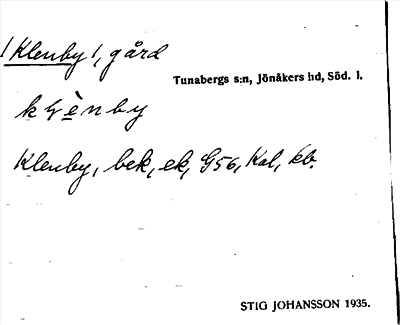 /Klenby/, gård
Tunabergs s:n, Jönåkers hd, Söd. l.
Klenby, bek, ek, G56, Kal, kb.
STIG JOHANSSON 1935.